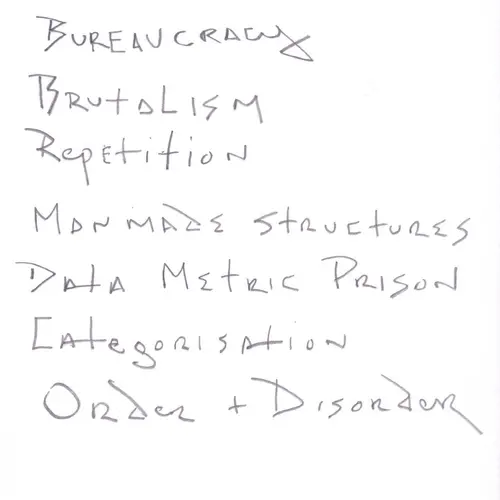 BUREAUCRACY
BRUTALISM
REPETITION
MANMADE STRUCTURES
DATA METRIC PRISON
CATEGORISATION
ORDER + DISORDER